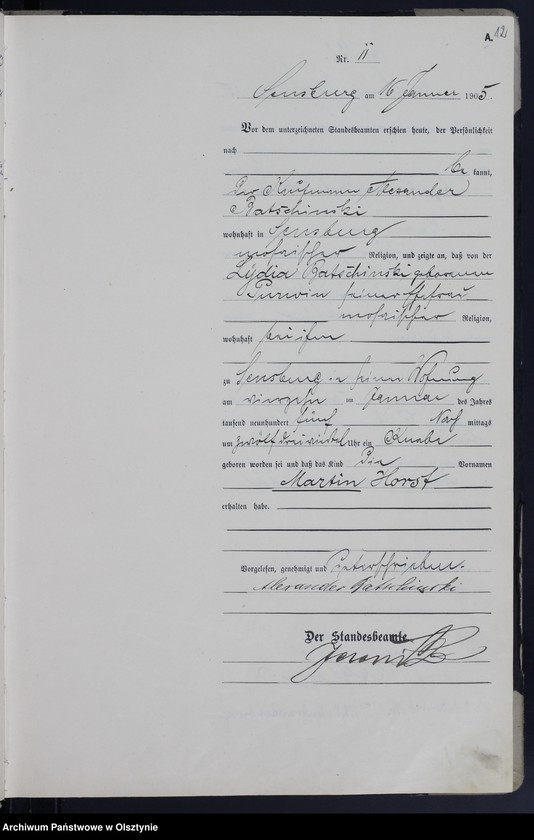 A. 12
Nr. 11
Sensburg am 16 Januar 1905.
Vor dem unterzeichneten Standesbeamten erschien heute, der Persönlichkeit
nach
be kannt,
Der Kaufmann Alexander
Ratschinski
wohnhaft in Sensburg
mosaischer Religion, und zeigte an, daß von der
Lydia Ratschinski geborenen
Purwin seiner Ehefrau
mosaischer Religion,
wohnhaft bei ihm
zu Sensburg in seiner Wohnung
am vierzehn ten Januar des Jahres
tausend neunhundert fünf Nach mittags
um zwölf dreiviertel Uhr ein Knabe
geboren worden sei und daß das Kind die Vornamen
Martin Horst
erhalten habe.
Vorgelesen, genehmigt und unterschrieben.
Alexander Ratschinski
Der Standesbeamte.
Archiwum Państwowe w Olsztynie